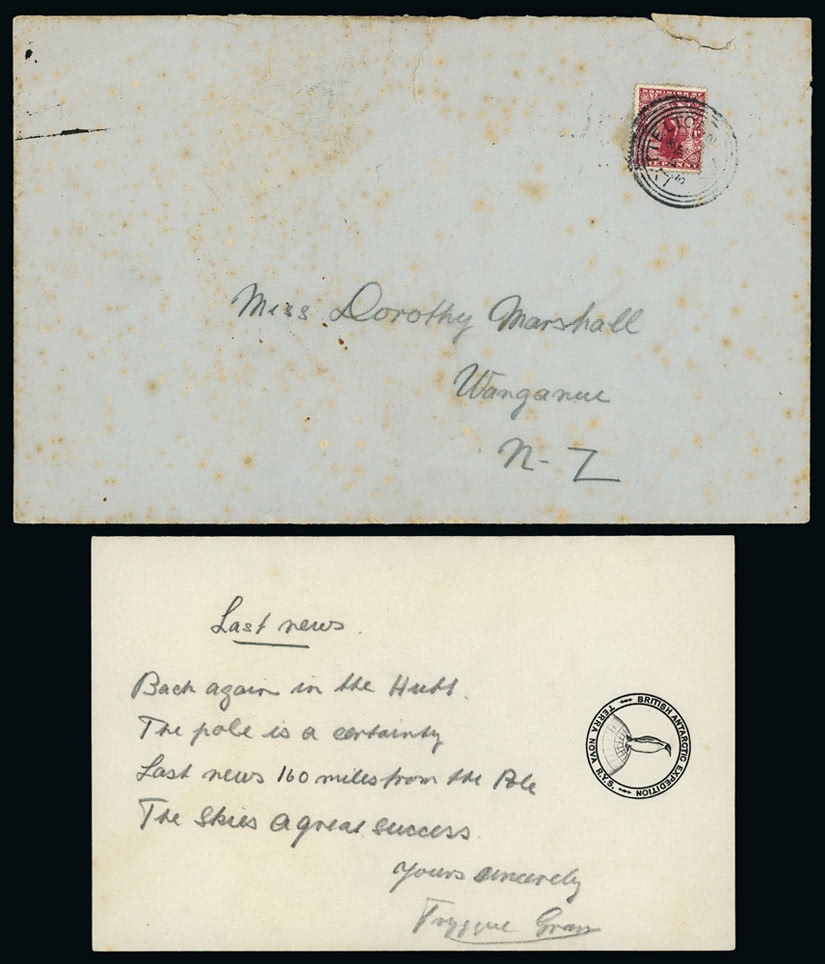 DOMINION OF
LYTTELTON
Miss Dorothy Marshall
Wanganui
N-Z
Last news.
Back again in the Hutt.
The pole is a certainty
Last news 160 miles from the Pole
The Skies a great success.
Yours sincerely
Tryggve Gran
BRITISH ANTARCTIC EXPEDITION
TERRA NOVA R.Y.S.